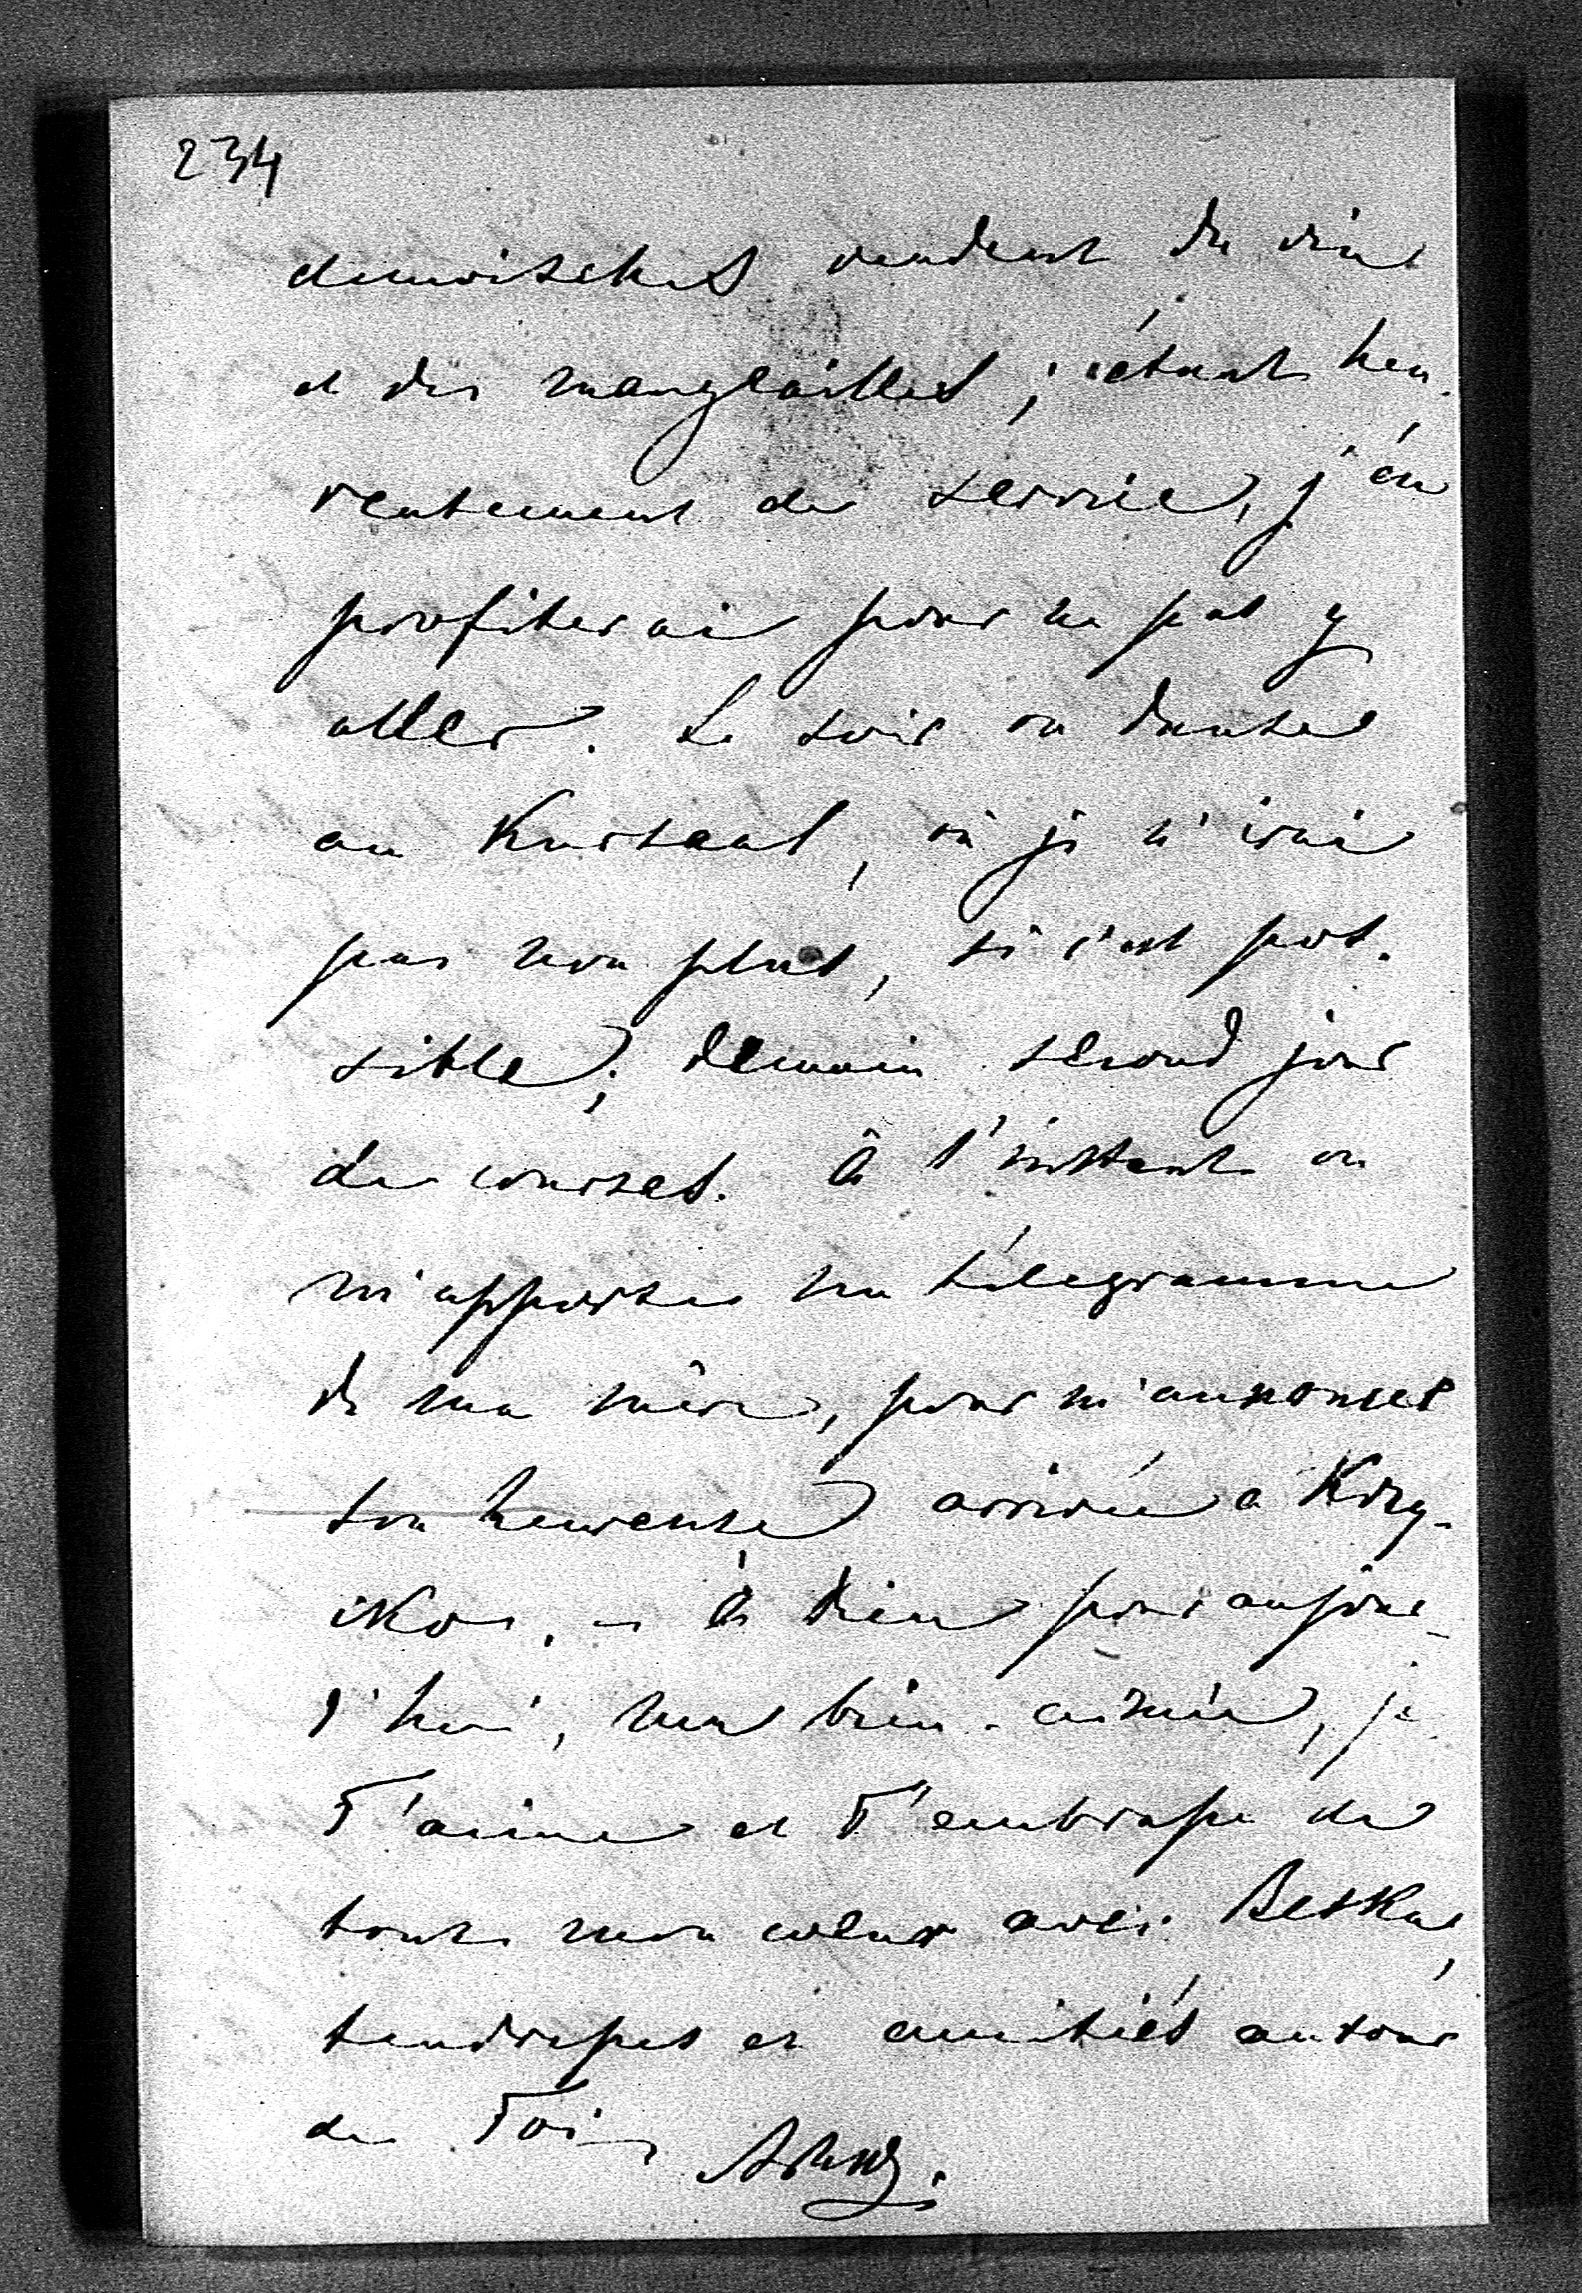 234
demoiselles vendent du vin
et des mangeailles; étant heu-
reusement de service, j'en
profiterai pour ne pas y
aller. Le soir on danse
au Kursaal, où je n'irai
pas non plus, si c'est pos-
sible; demain second jour
de courses. À l'instant on
m'apporte un télégramme
de ma mère, pour m'annoncer
ton heureuse arrivée à
à Dieu pour aujour-
d'hui, ma bien-aimée, je
T'aime et T'embrasse de
tout mon coeur avec
tendresses et amitiés autour
de Toi